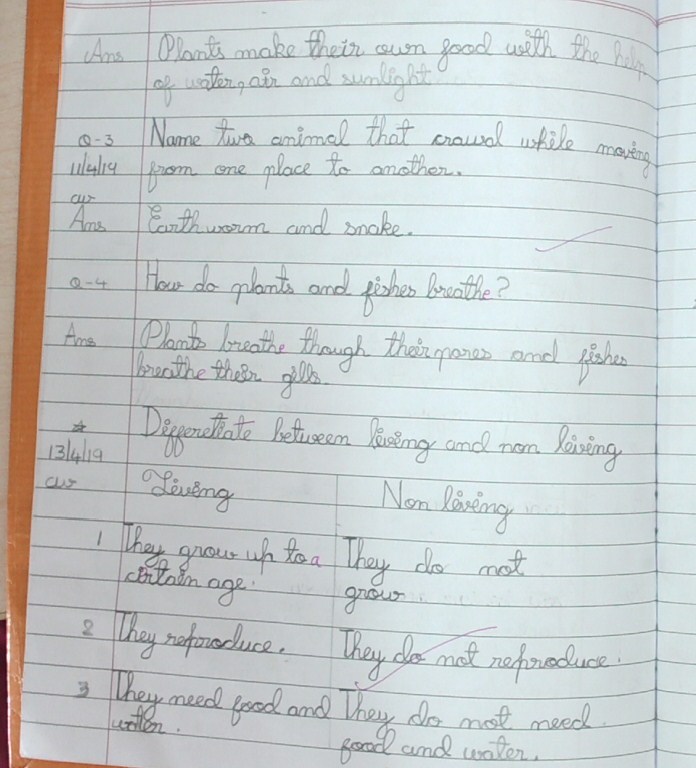 Ans Plants make their own food with the help
of water, air and sunlight
Q-3 Name two animal that crawal while moving
11/4/19 from one place to another.
cw
Ans Earthworm and snake.
Q-4 How do plants and fishes breathe?
Ans Plants breathe though their pores and fishes
breathe their gills.
Differetiate between living and non living
13/4/19
cw Living Non living
1 They grow up to a They do not
certain age. grow
2 They reproduce. They do not reproduce.
3 They need food and They do not need
water. food and water.